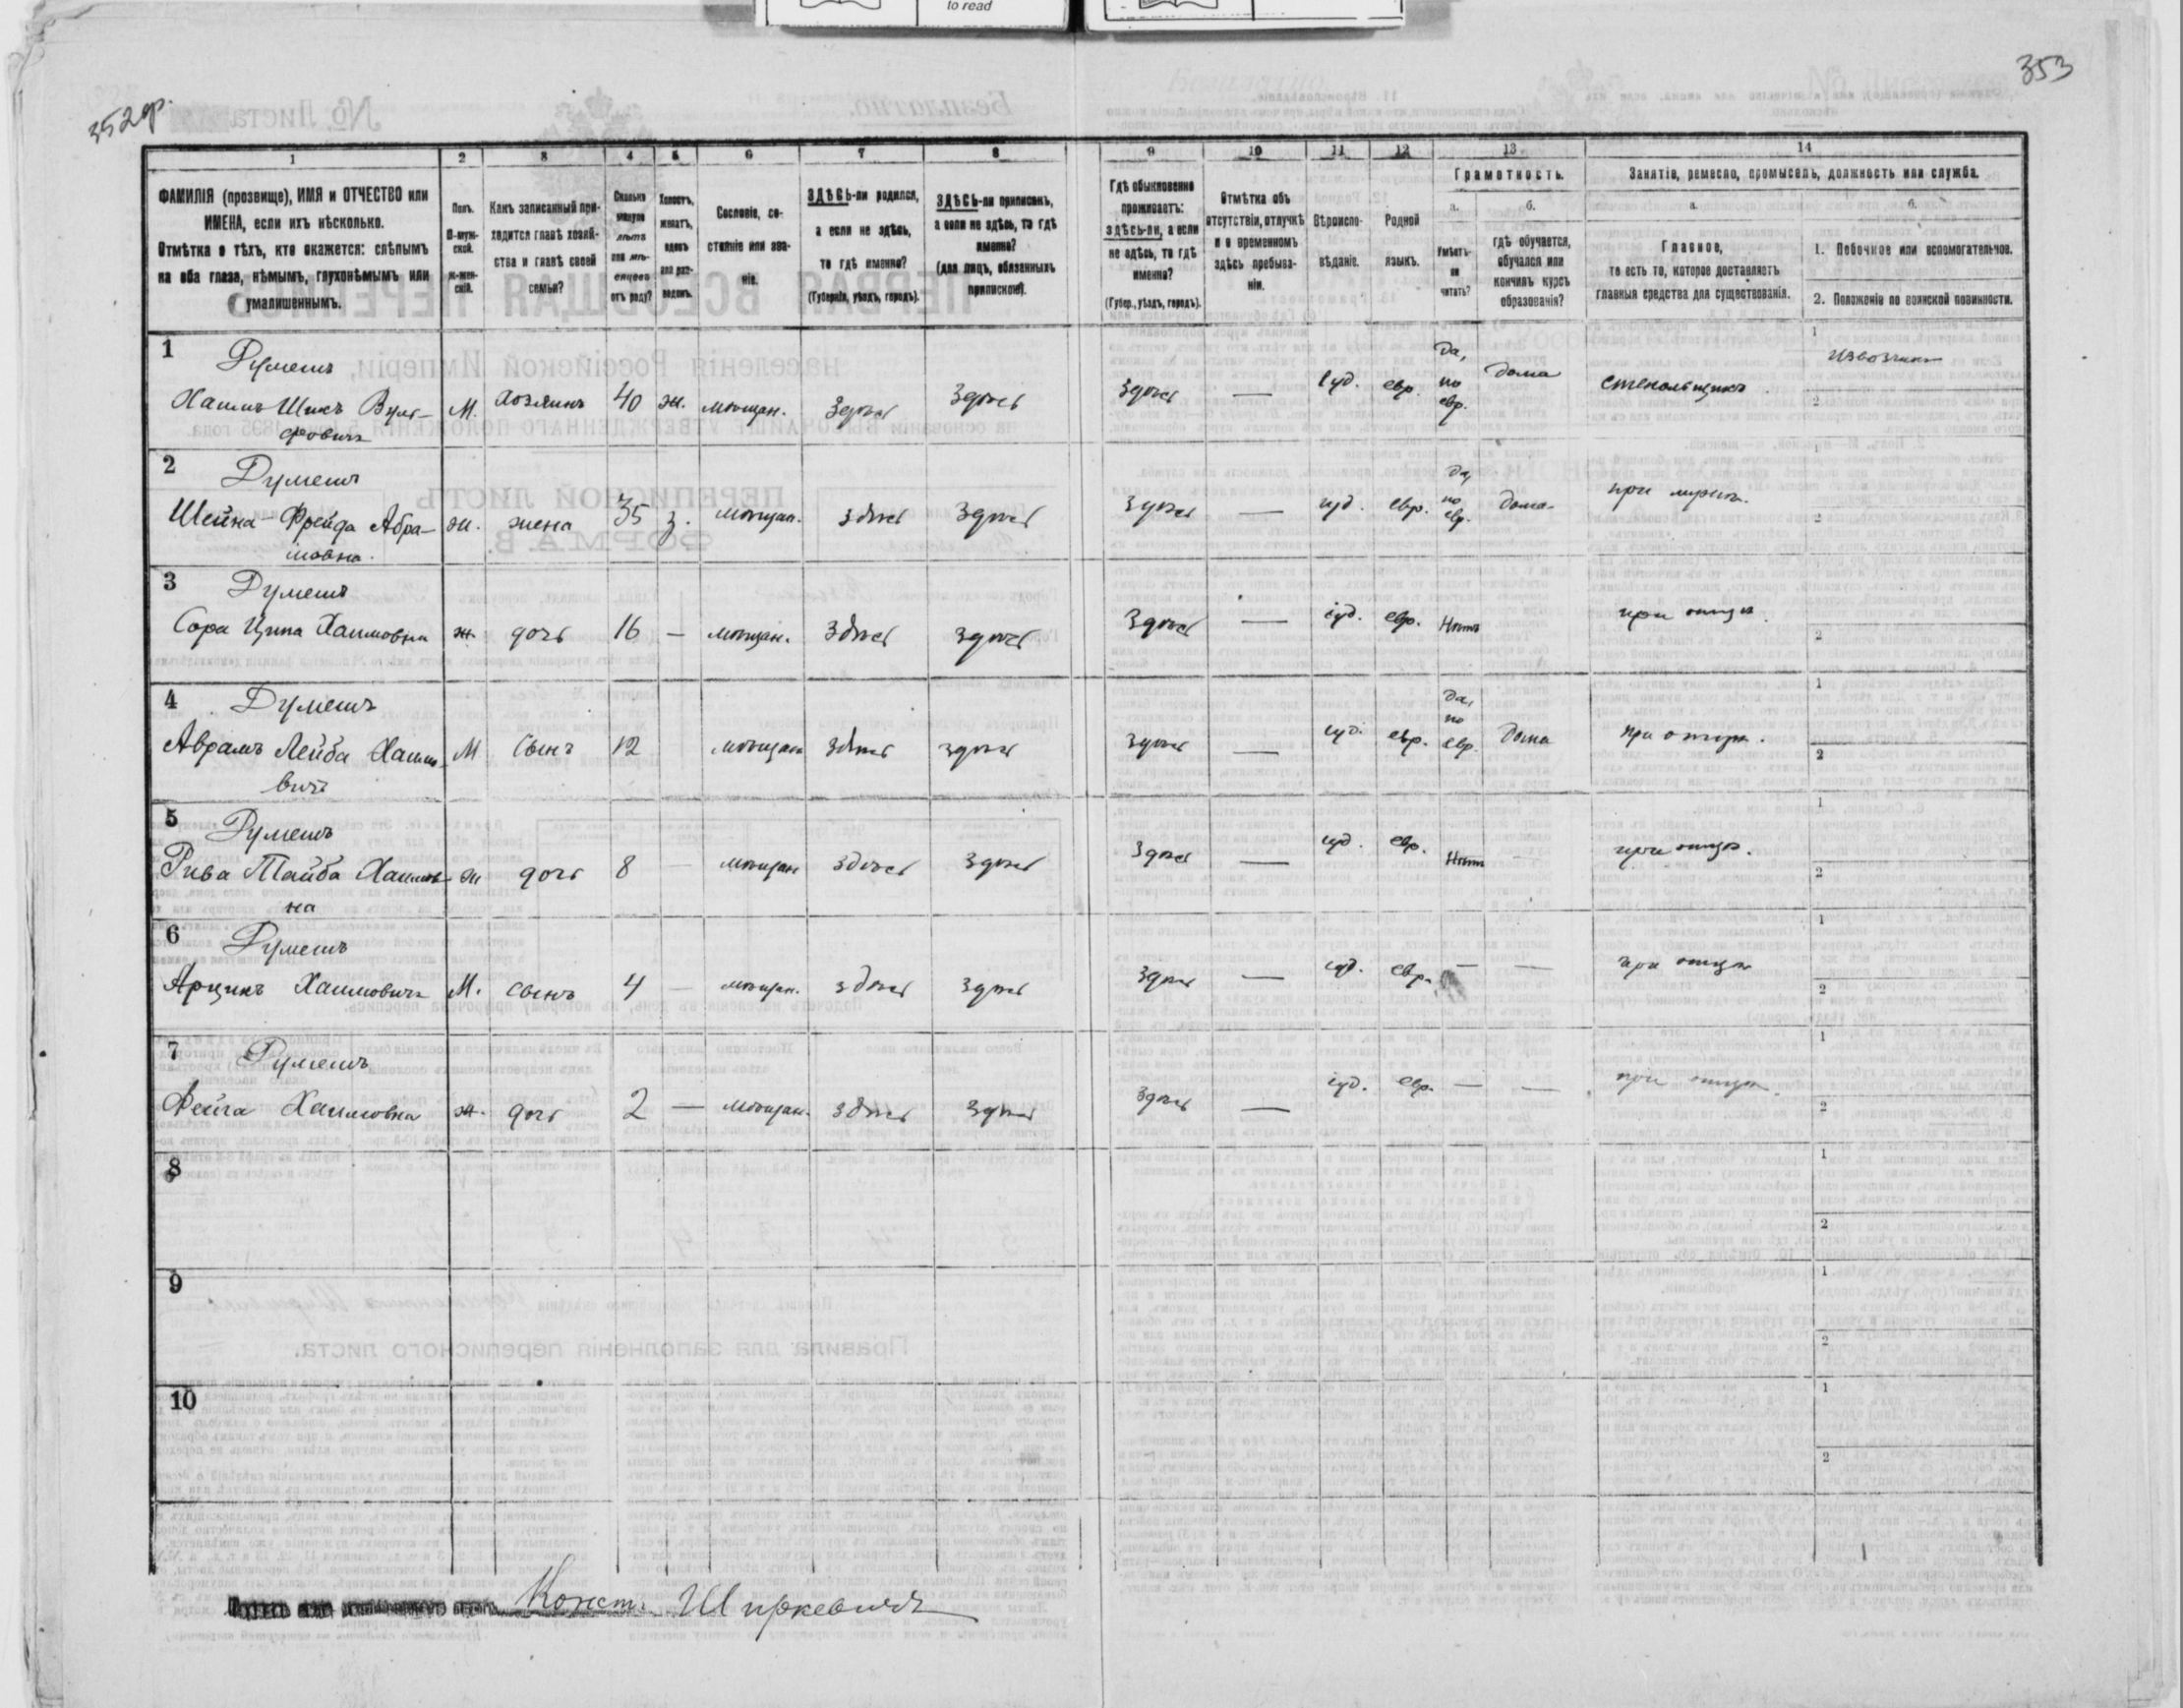 to read
352 об.
353
1 2 3 4 5 6 7 8 9 10 11 12 13 14
ФАМИЛІЯ (прозвище), ИМЯ и ОТЧЕСТВО или
ИМЕНА, если ихъ нѣсколько.
Отмѣтка о тѣхъ, кто окажется: слѣпымъ
на оба глаза, нѣмымъ, глухонѣмымъ или
умалишеннымъ.
Полъ.
М-муж-
ской.
ж-жен-
скій.
Какъ записанный при-
ходится главѣ хозяй-
ства и главѣ своей
семьи?
Сколько
минуло
лѣтъ
или мѣ-
сяцевъ
отъ роду?
Холостъ,
женатъ,
вдовъ
или раз-
веденъ.
Сословіе, со-
стояніе или зва-
ніе.
ЗДѢСЬ-ли родился,
а если не здѣсь,
то гдѣ именно?
(Губернія, уѣздъ, городъ).
ЗДѢСЬ-ли приписанъ,
а если не здѣсь, то гдѣ
именно?
(для лицъ, обязанныхъ
припискою).
Гдѣ обыкновенно
проживаетъ:
здѣсь-ли, а если
не здѣсь, то гдѣ
именно?
(Губер., уѣздъ, городъ).
Отмѣтка объ
отсутствіи, отлучкѣ
и о временномъ
здѣсь пребыва-
ніи.
Вѣроиспо-
вѣданіе.
Родной
языкъ.
Грамотность.
а.
Умѣетъ-
ли
читать?
б.
гдѣ обучается,
обучался или
кончилъ курсъ
образованія?
Занятіе, ремесло, промыселъ, должность или служба.
а.
Главное,
то есть то, которое доставляетъ
главныя средства для существованія.
б.
1. Побочное или вспомогательное.
2. Положеніе по воинской повинности.
1 Румешъ
Хаимъ Ицикъ Вуль-
фовичъ
М. Хозяинъ 40 ж. мѣщан. Здѣсь Здѣсь Здѣсь — іуд. евр. Да, по евр. Дома стекольщикъ извозчикъ
2 Румешъ
Шейна-Фрейда Абра-
мовна.
ж. жена 35 з. мѣщан. здѣсь Здѣсь Здѣсь — іуд. евр. Да, по евр. Дома при мужѣ.
3 Румешъ
Сора Ципа Хаимовна ж. дочь 16 — мѣщан. здѣсь здѣсь Здѣсь — іуд. евр. Нѣтъ при отцѣ.
4 Румешъ
Аврамъ Лейба Хаимо-
вичъ
М сынъ 12 мѣщан здѣсь здѣсь здѣсь — іуд. евр. Да, по евр. Дома при отцѣ.
5 Румешъ
Рива Тайба Хаимов-
на
ж дочь 8 — мѣщан здѣсь здѣсь здѣсь — іуд. евр. Нѣтъ — при отцѣ.
6 Румешъ
Арцикъ Хаимовичъ М. сынъ 4 — мѣщан. здѣсь здѣсь здѣсь — іуд. евр. — — при отцѣ
7 Румешъ
Фейга Хаимовна ж. дочь 2 — мѣщан. здѣсь здѣсь здѣсь — іуд. евр. — — при отцѣ.
8
9
10
Конст. Ширкевичъ